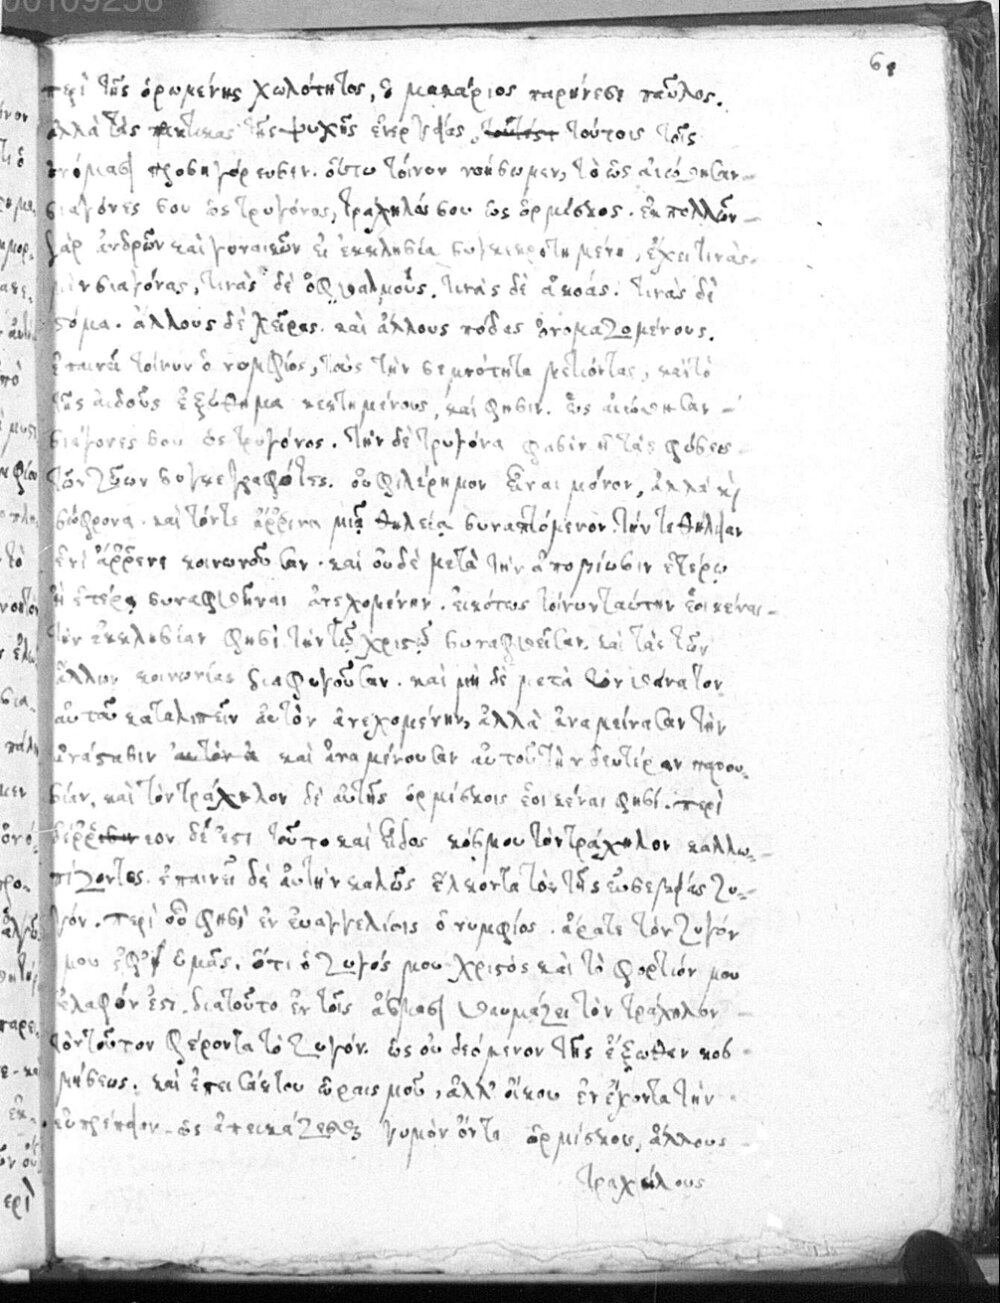 00109256
61
περὶ τῆς ὁρωμένης χωλότητος, ὁ μακάριος παρήνεσε παῦλος.
ἀλλὰ τὰς πρακτικὰς τῆς ψυχῆς ἐνεργείας, τούτοις τοῖς
ὀνόμασι προσηγόρευσεν. οὕτω τοίνυν νοήσωμεν, τὸ ὡς ὡραιώθησαν
σιαγόνες σου ὡς τρυγόνος, τράχηλός σου ὡς ὁρμίσκος. ἐκ πολλῶν
γὰρ ἀνδρῶν καὶ γυναικῶν ἡ ἐκκλησία συγκεκροτημένη, ἔχει τινὰς
μὲν σιαγόνας, τινὰς δὲ ὀφθαλμούς. τινὰς δὲ ἀκοάς. τινὰς δὲ
στόμα. ἄλλους δὲ χεῖρας. καὶ ἄλλους πόδας ὀνομαζομένους.
ἐπαινεῖ τοίνυν ὁ νυμφίος, τοὺς τὴν σεμνότητα μετιόντας, καὶ τὸ
τῆς αἰδοῦς ἐξώθημα κεκτημένους, καὶ φησίν. ὡς ὡραιώθησαν
σιαγόνες σου ὡς τρυγόνος. τὴν δὲ τρυγόνα φασὶν οἱ τὰς φύσεις
τῶν ζώων συγγεγραφότες. οὐ φιλέρημον εἶναι μόνον, ἀλλὰ καὶ
σώφρονα. καὶ τόν τε ἄρρενα μιᾷ θηλείᾳ συναπτόμενον. τήν τε θήλειαν
ἑνὶ ἄρρενι κοινωνοῦσαν. καὶ οὐδὲ μετὰ τὴν ἀποβίωσιν ἑτέρῳ
ἢ ἑτέρᾳ συναφθῆναι ἀνεχομένην. εἰκότως τοίνυν ταύτην ἐοικέναι
τὴν ἐκκλησίαν φησὶ τὴν τῷ χριστῷ συναφθεῖσαν. καὶ τὰς τῶν
ἄλλων κοινωνίας διαφυγοῦσαν. καὶ μὴ δὲ μετὰ τὸν θάνατον
αὐτοῦ καταλιπεῖν αὐτὸν ἀνεχομένην, ἀλλὰ ἀναμείνασαν τὴν
ἀνάστασιν καὶ ἀναμένουσαν αὐτοῦ τὴν δευτέραν παρου-
σίαν. καὶ τὸν τράχηλον δὲ αὐτῆς ὁρμίσκοις ἐοικέναι φησί. περι
δέρρεον δέ ἐστι τοῦτο καὶ εἶδος κόσμου τὸν τράχηλον καλλω-
πίζοντος. ἐπαινεῖ δὲ αὐτὴν καλῶς ἕλκοντα τὸν τῆς εὐσεβείας ζυ-
γόν. περὶ οὗ φησὶ ἐν εὐαγγελίοις ὁ νυμφίος. ἄρατε τὸν ζυγόν
μου ἐφ' ὑμᾶς. ὅτι ὁ ζυγός μου χρηστὸς καὶ τὸ φορτίον μου
ἐλαφρόν ἐστι. διατοῦτο ἐν τοῖς ᾄσμασι θαυμάζει τὸν τράχηλον
τὸν τοῦτον φέροντα τὸ ζυγόν. ὡς οὐ δεόμενον τῆς ἔξωθεν κοσ-
μήσεως. καὶ ἐπεισάκτου ὡραισμοῦ, ἀλλ' οἴκοθεν ἔχοντα τὴν
εὐπρέπειαν. ὡς ἀπεικάζεσθαι γυμνὸν ὄντα ὁρμίσκοις, ἄλλους
τραχήλους